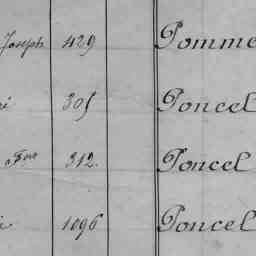 Joseph 429 Pomme
305 Poncel
Fois 312 Poncel
1096 Poncel